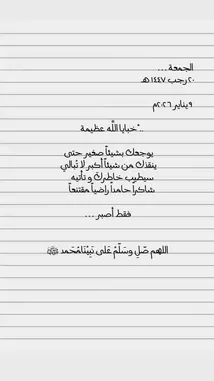 الجمعة ...
٢٠ رجب ١٤٤٧ هـ
٩ يناير ٢٠٢٦م
..ّخبايا اللّٰه عظيمة
يوجعك بشيئاً صغير حتى
ينقذك من شيئاً أكبر لا تُبالي
سيطيب خاطرك و تأتيه
شاكرا حامداً راضياً مقتنعاً
فقط أصبر ...
اللهم صّلِ وسَلّمْ عَلى نَبِيْنَامُحَمد ﷺ